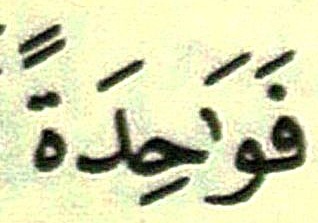 فَوَٰحِدَةً